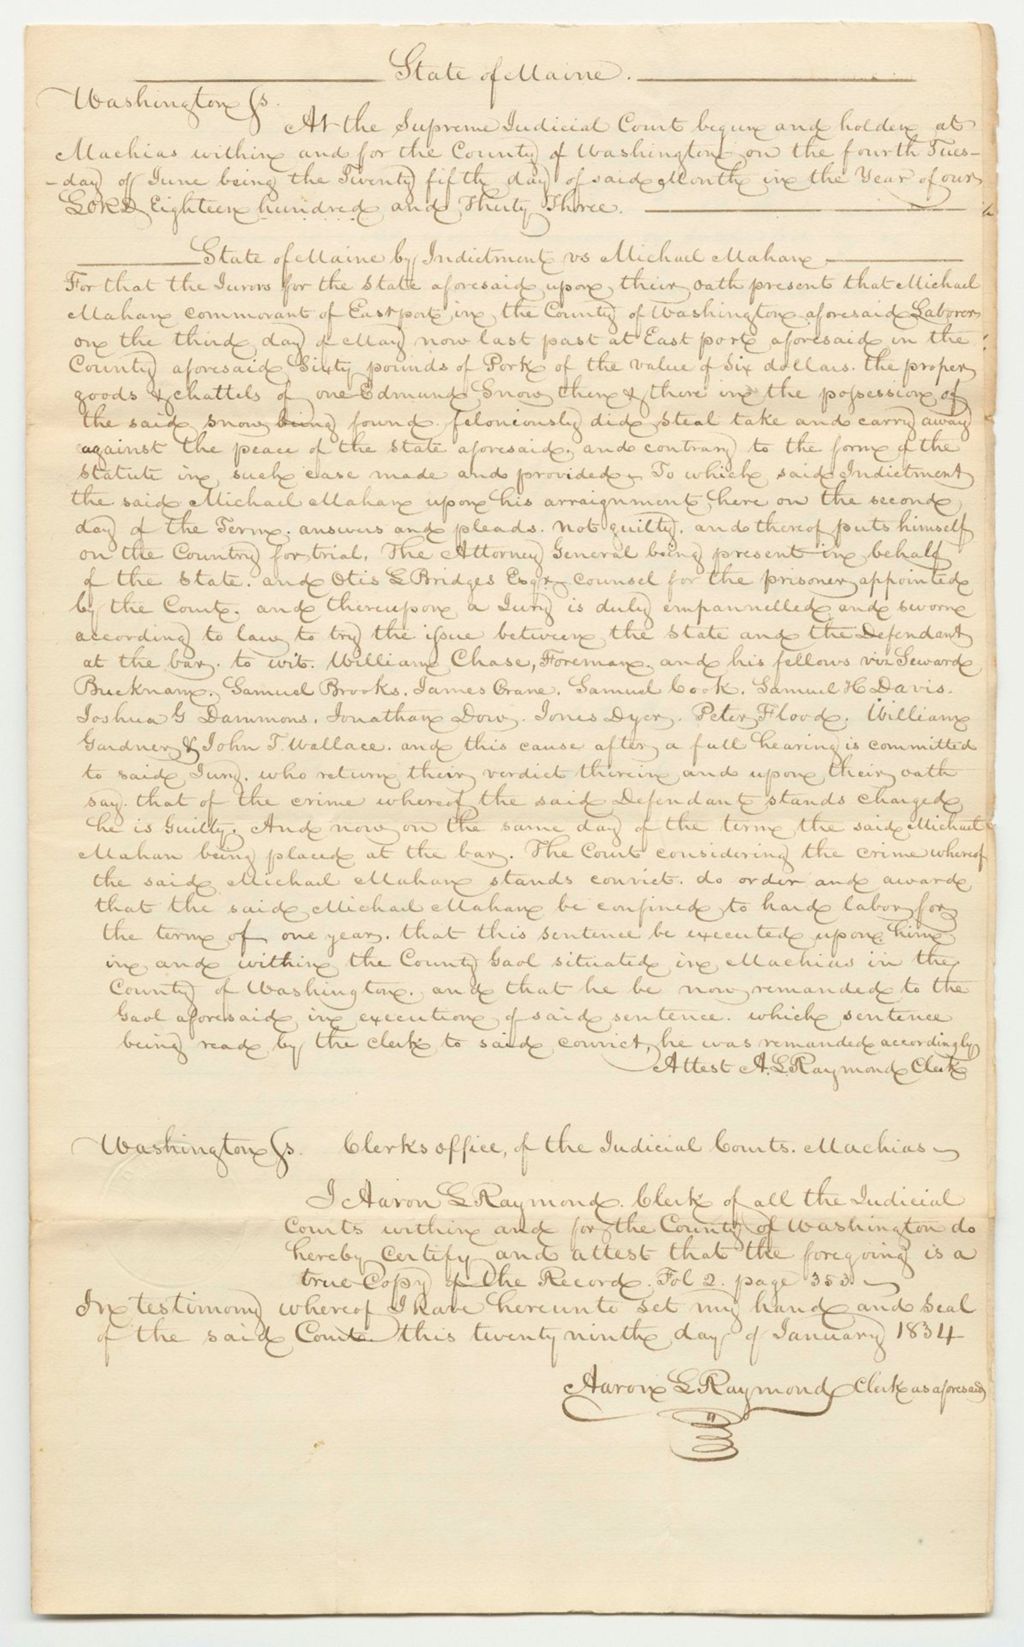 State of Maine.
Washington ss.
At the Supreme Judicial Court begun and holden at
Machias within and for the County of Washington on the fourth Tues-
-day of June being the Twenty fifth day of said Month in the Year of our
LORD Eighteen hundred and Thirty Three.
State of Maine by Indictment vs Michael Mahan
For that the Jurors for the State aforesaid upon their oath present that Michael
Mahan commorant of Eastport in the County of Washington aforesaid Laborer
on the third day of May now last past at East port aforesaid in the
County aforesaid Sixty pounds of Pork of the value of Six dollars. the proper
goods & chattels of one Edmund Snow then & there in the possession of
the said Snow being found feloniously did steal take and carry away
against the peace of the State aforesaid, and contrary to the form of the
Statute in such case made and provided. To which said Indictment
the said Michael Mahan upon his arraignment here on the second
day of the Term. answers and pleads. not guilty. and thereof puts himself
on the Country for trial. The Attorney General being present in behalf
of the State. and Otis L Bridges Esqr. counsel for the prisoner appointed
by the Court. and thereupon a Jury is duly empannelled and sworn
according to law to try the issue between the State and the Defendant
at the bar. to wit. William Chase, Foreman, and his fellows viz Seward
Bucknam. Samuel Brooks. James Crane. Samuel Cook. Samuel H Davis.
Joshua G Dammons. Jonathan Dow. Jones Dyer. Peter Flood. William
Gardner & John T. Wallace. and this cause after a full hearing is committed
to said Jury. who return their verdict therein and upon their oath
say. that of the crime whereof the said Defendant stands charged
he is Guilty. And now on the same day of the term the said Michael
Mahan being placed at the bar. The Court considering the crime whereof
the said Michael Mahan stands convict. do order and award
that the said Michael Mahan be confined to hard labor for
the term of one year. that this sentence be executed upon him
in and within the County Gaol situated in Machias in the
County of Washington. and that he be now remanded to the
Gaol aforesaid in execution of said sentence. which sentence
being read by the clerk to said convict, he was remanded accordingly
Attest A. L Raymond Clerk
Washington ss. Clerks office, of the Judicial Courts. Machias
I Aaron L Raymond Clerk of all the Judicial
Courts within and for the County of Washington do
hereby Certify and attest that the foregoing is a
true Copy of the Record. Fol 2. page 353.
In testimony whereof I have hereunto set my hand and Seal
of the said Court this twenty ninth day of January 1834
Aaron L Raymond Clerk as aforesaid